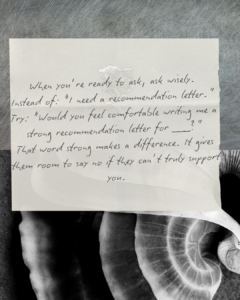 When you're ready to ask, ask wisely.
Instead of: "I need a recommendation letter."
Try: "Would you feel comfortable writing me a
strong recommendation letter for ___?"
That word strong makes a difference. It gives
them room to say no if they can't truly support
you.